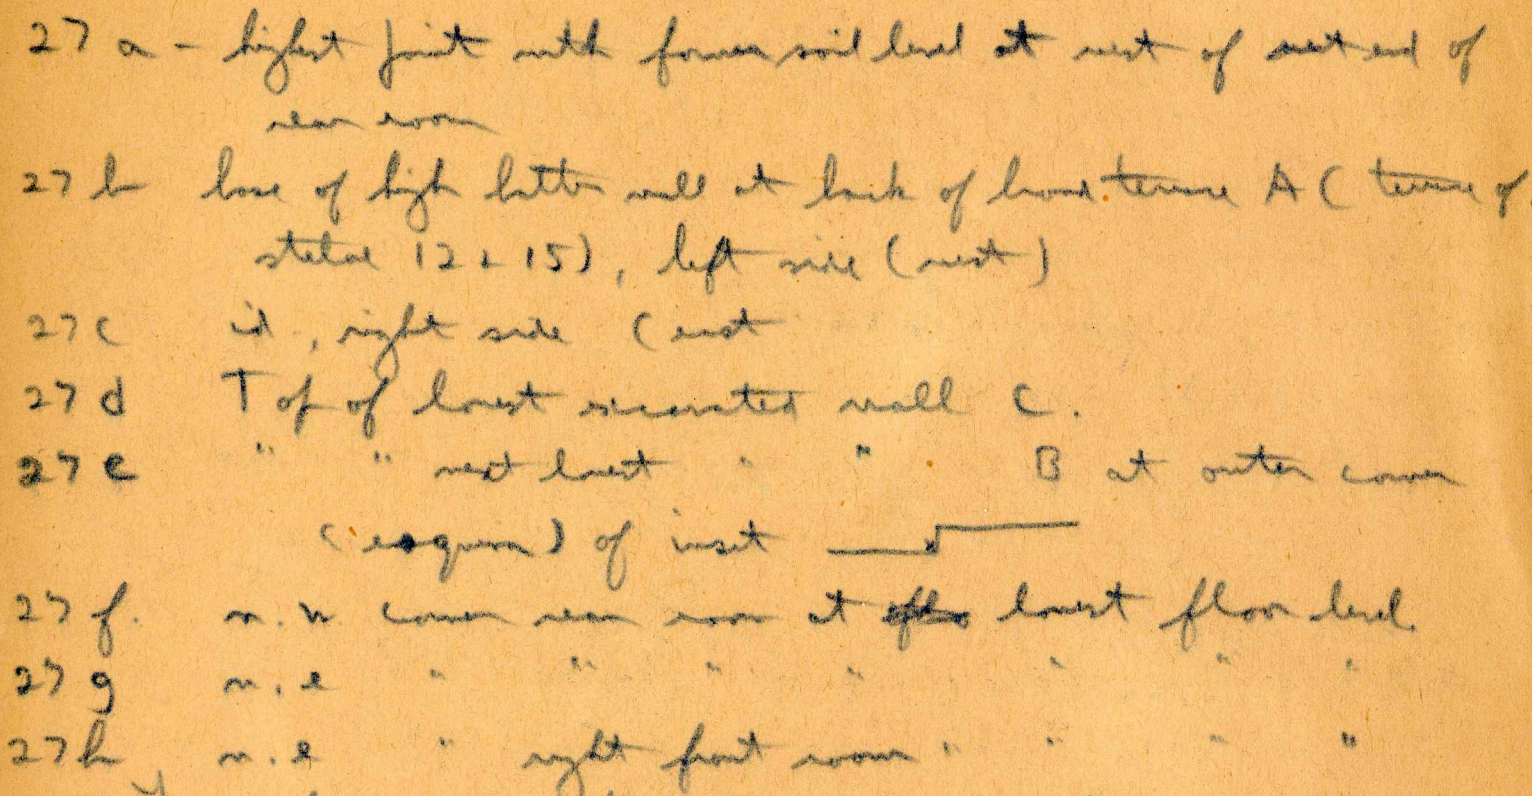 27 a - highest point with former soil level at west of west end of
rear room
27 b base of high batter wall at back of broad terrace A (terrace of
stelae 12 + 15), left side (west)
27 c id, right side (east
27 d Top of lowest excavated wall C.
27 e " " next lowest " " B at outer corner
( ) of inset
27 f. n.w. corner rear room at lowest floor level.
27 g n.e " " " " " " "
27 h n.e " right front room " " " "